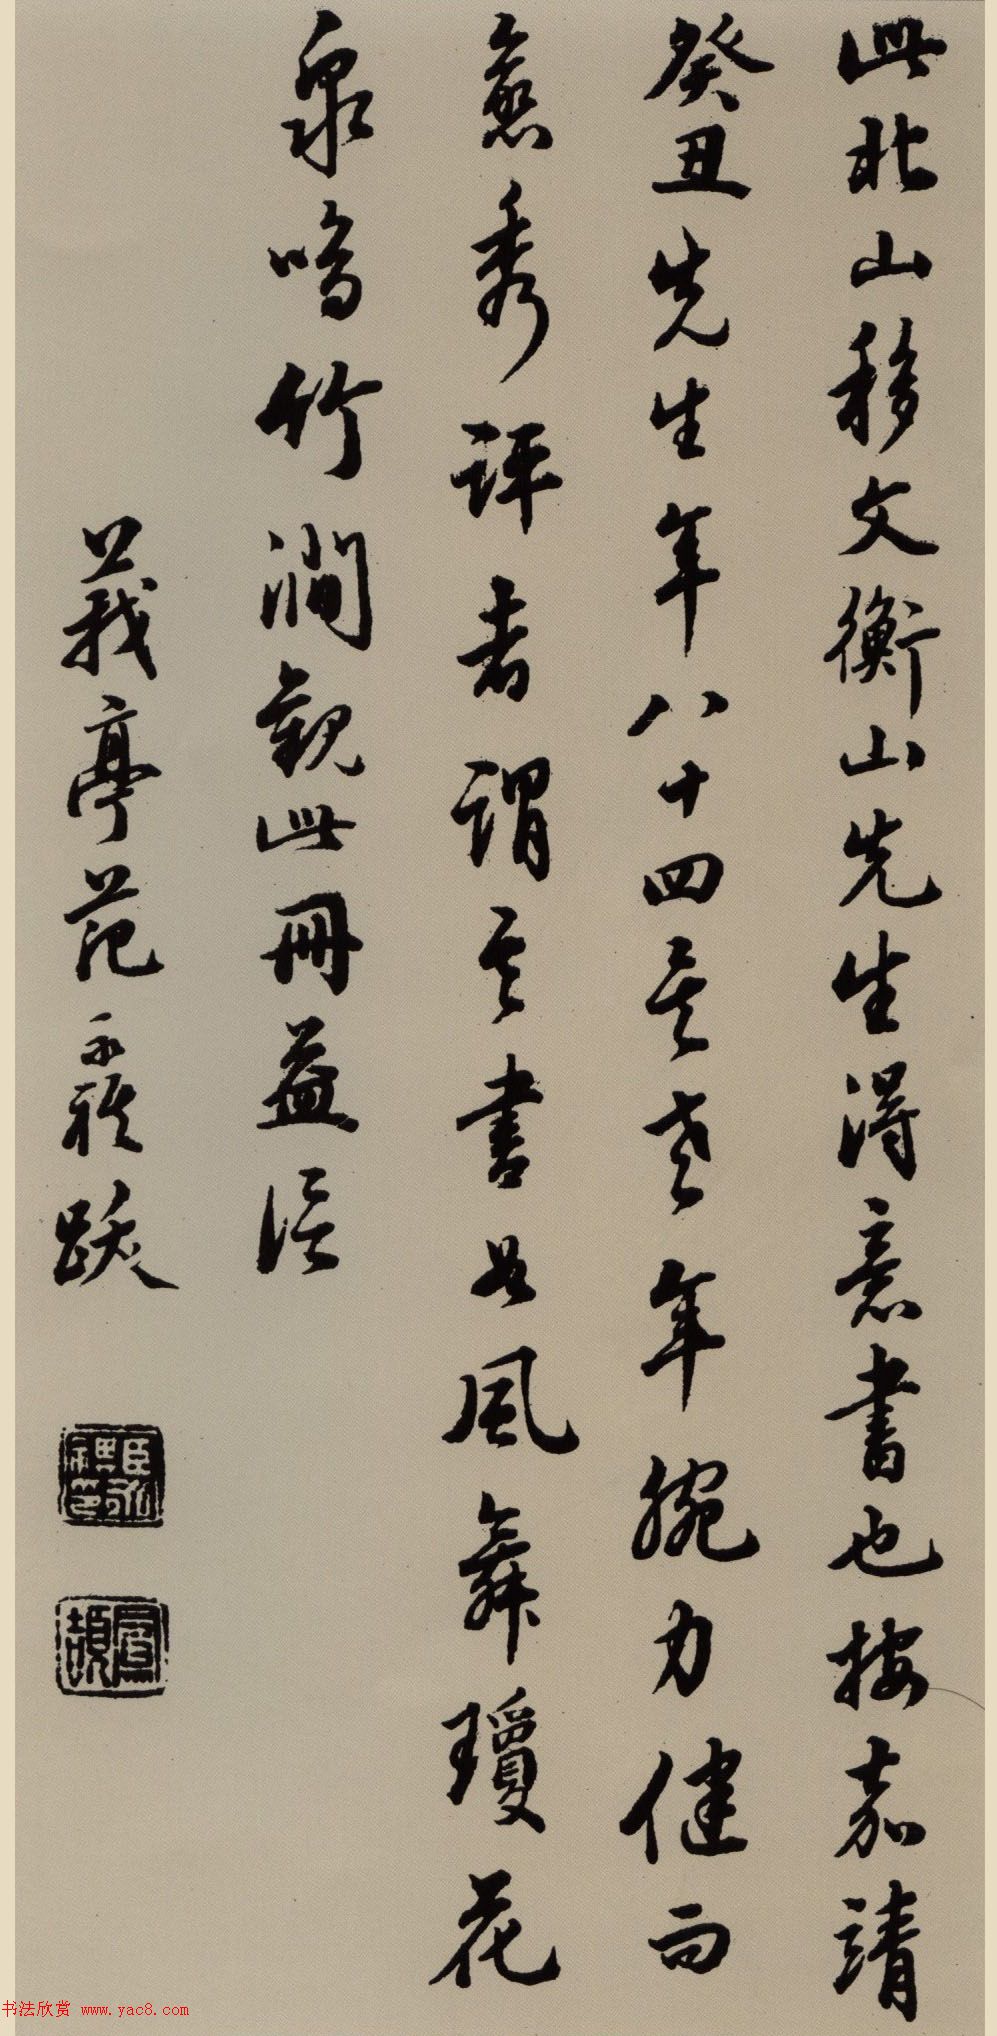 此北山移文衡山先生得意書也按嘉靖
癸丑先生年八十四矣老年腕力健而
愈秀評者謂其書如風舞瓊花
泉鳴竹澗觀此冊益信
莪亭范永祺跋
鳳頡
书法欣赏 www.yac8.com